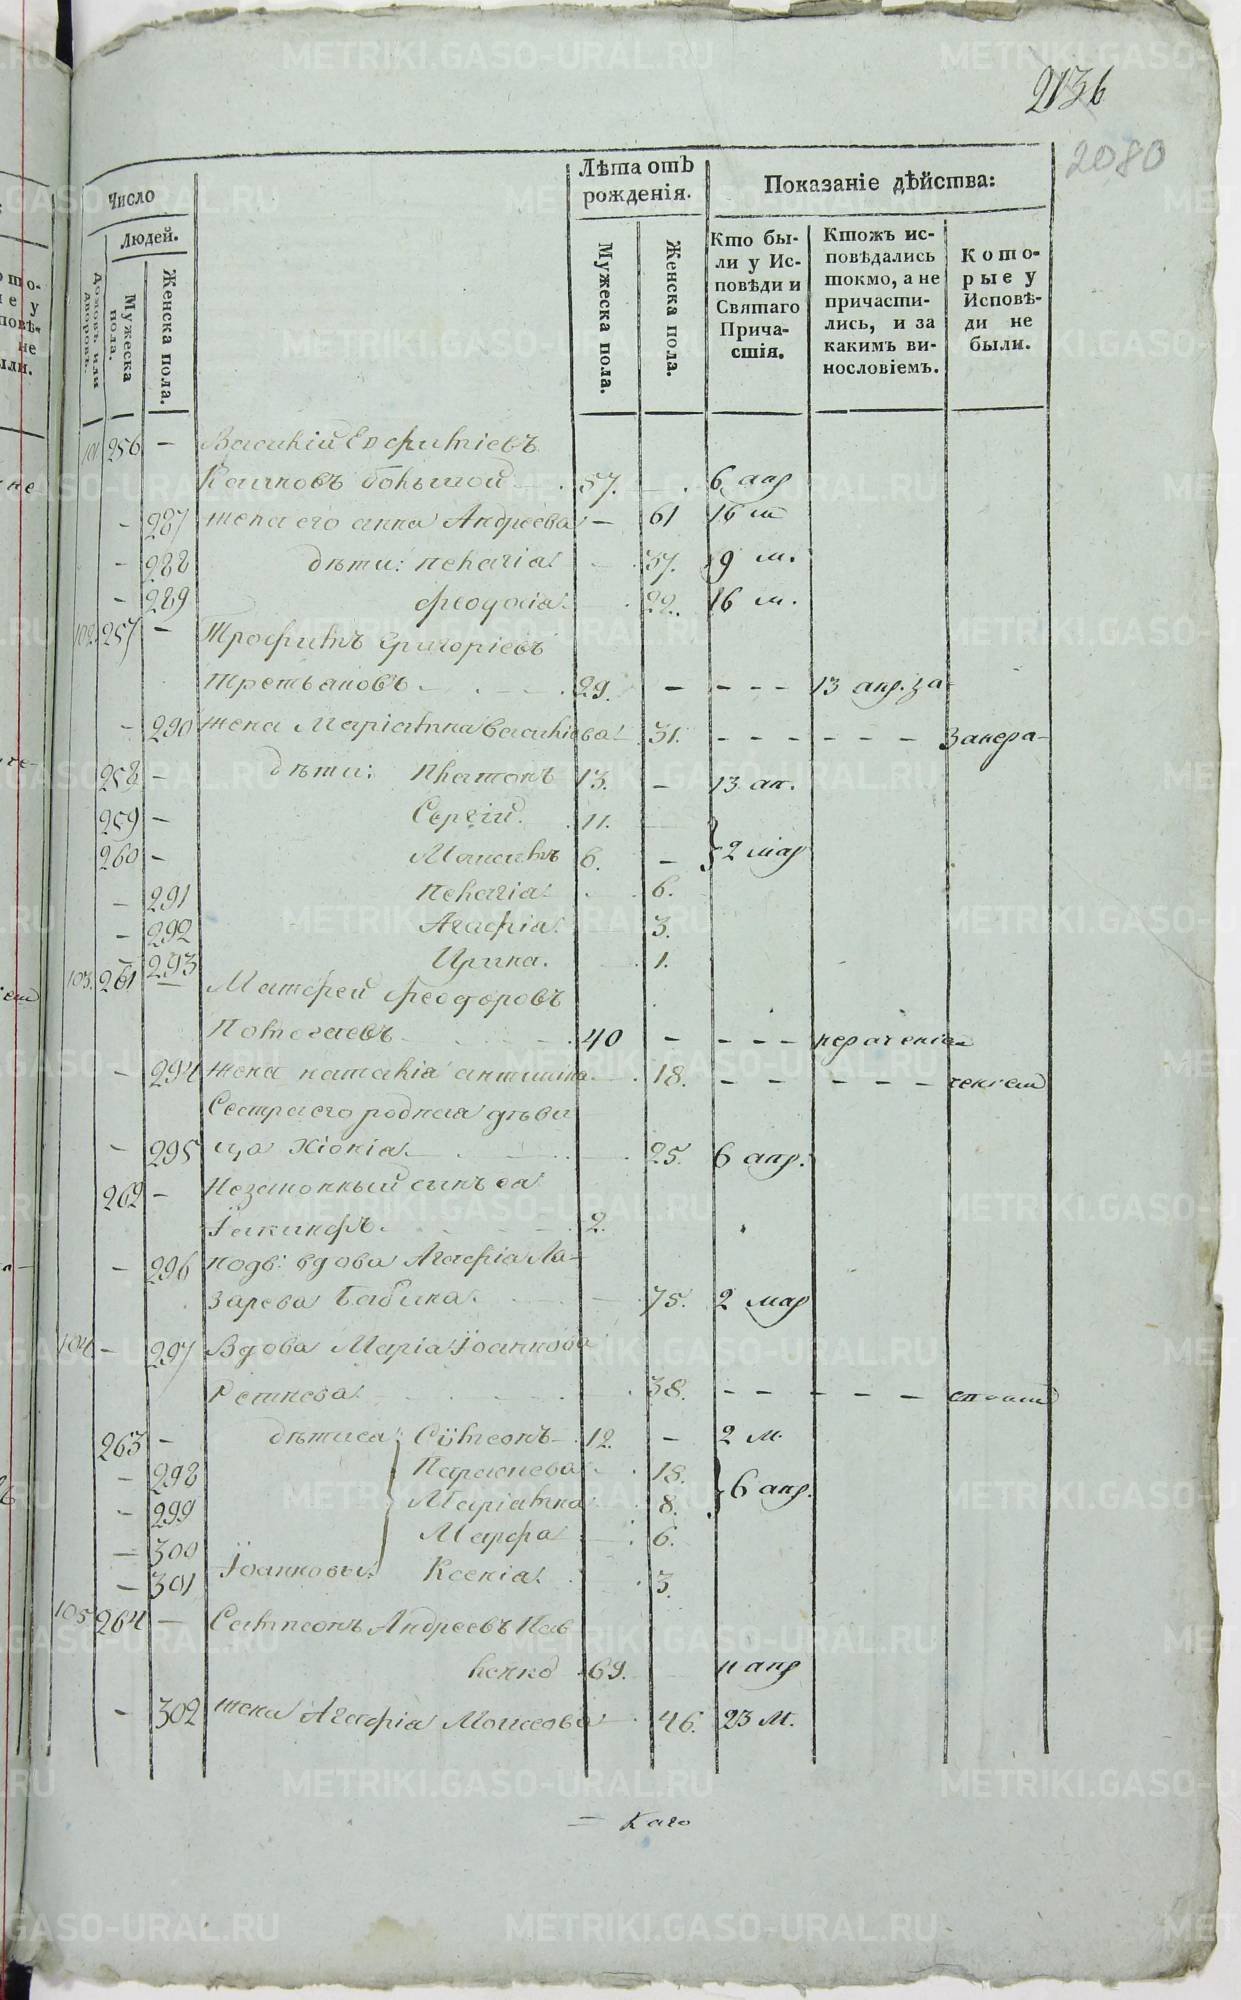 2136
2080
Число
Людей.
Домовъ или дворовъ.
Мужеска пола.
Женска пола.
Лѣта отъ рожденія.
Мужеска пола.
Женска пола.
Показаніе дѣйства:
Кто были у Исповѣди и Святаго Причастія.
Ктожъ исповѣдались токмо, а не причастились, и за какимъ винословіемъ.
Которые у Исповѣди не были.
101 256 — Василій Евфиміевъ
большой — 57. — 6 апр
— 287 жена его анна Андреева — 61 16 м
— 288 дѣти: пелагія 37. 9 м.
— 289 феодосія 22. 16 м.
102. 257 — Трофимъ Григоріевъ
Третьяковъ 29. — — — — 13 апр. за
— 290 жена Маріамна Василіева 31. — — — — — — Занера-
258 — дѣти: Платонъ 13. — 13 ап.
259 — Сергій 11.
260 — 6. — } 2 мар
— 291 Пелагія 6.
— 292 Агафія 3.
— 293 Ирина. 1.
103. 261 — Матфей Феодоровъ
40 — — — — нераченіем
— 294 жена наталія 18. — — — — —
Сестра его родная дѣви
— 295 ца Хіонія 25. 6 апр.
262 — Незаконный сынъ ея
Іакинфъ. 2.
— 296 подв: вдова Агафія Ла-
зарева Бабина. 75. 2 мар
104 — 297 Вдова Марія Іоаннова
38. — — — — —
263 — дѣти ея: Сѵмеонъ 12. — 2 м.
— 298 Параскева 18.
— 299 Маріамна 8. } 6 апр.
— 300 Марфа 6.
— 301 Іоанновы: Ксенія. 3.
105 264 — Сампсонъ Андреевъ Пав
ленко 69. 11 апр
— 302 жена Агафія Моисеева 46. 23 м.
METRIKI.GASO-URAL.RU